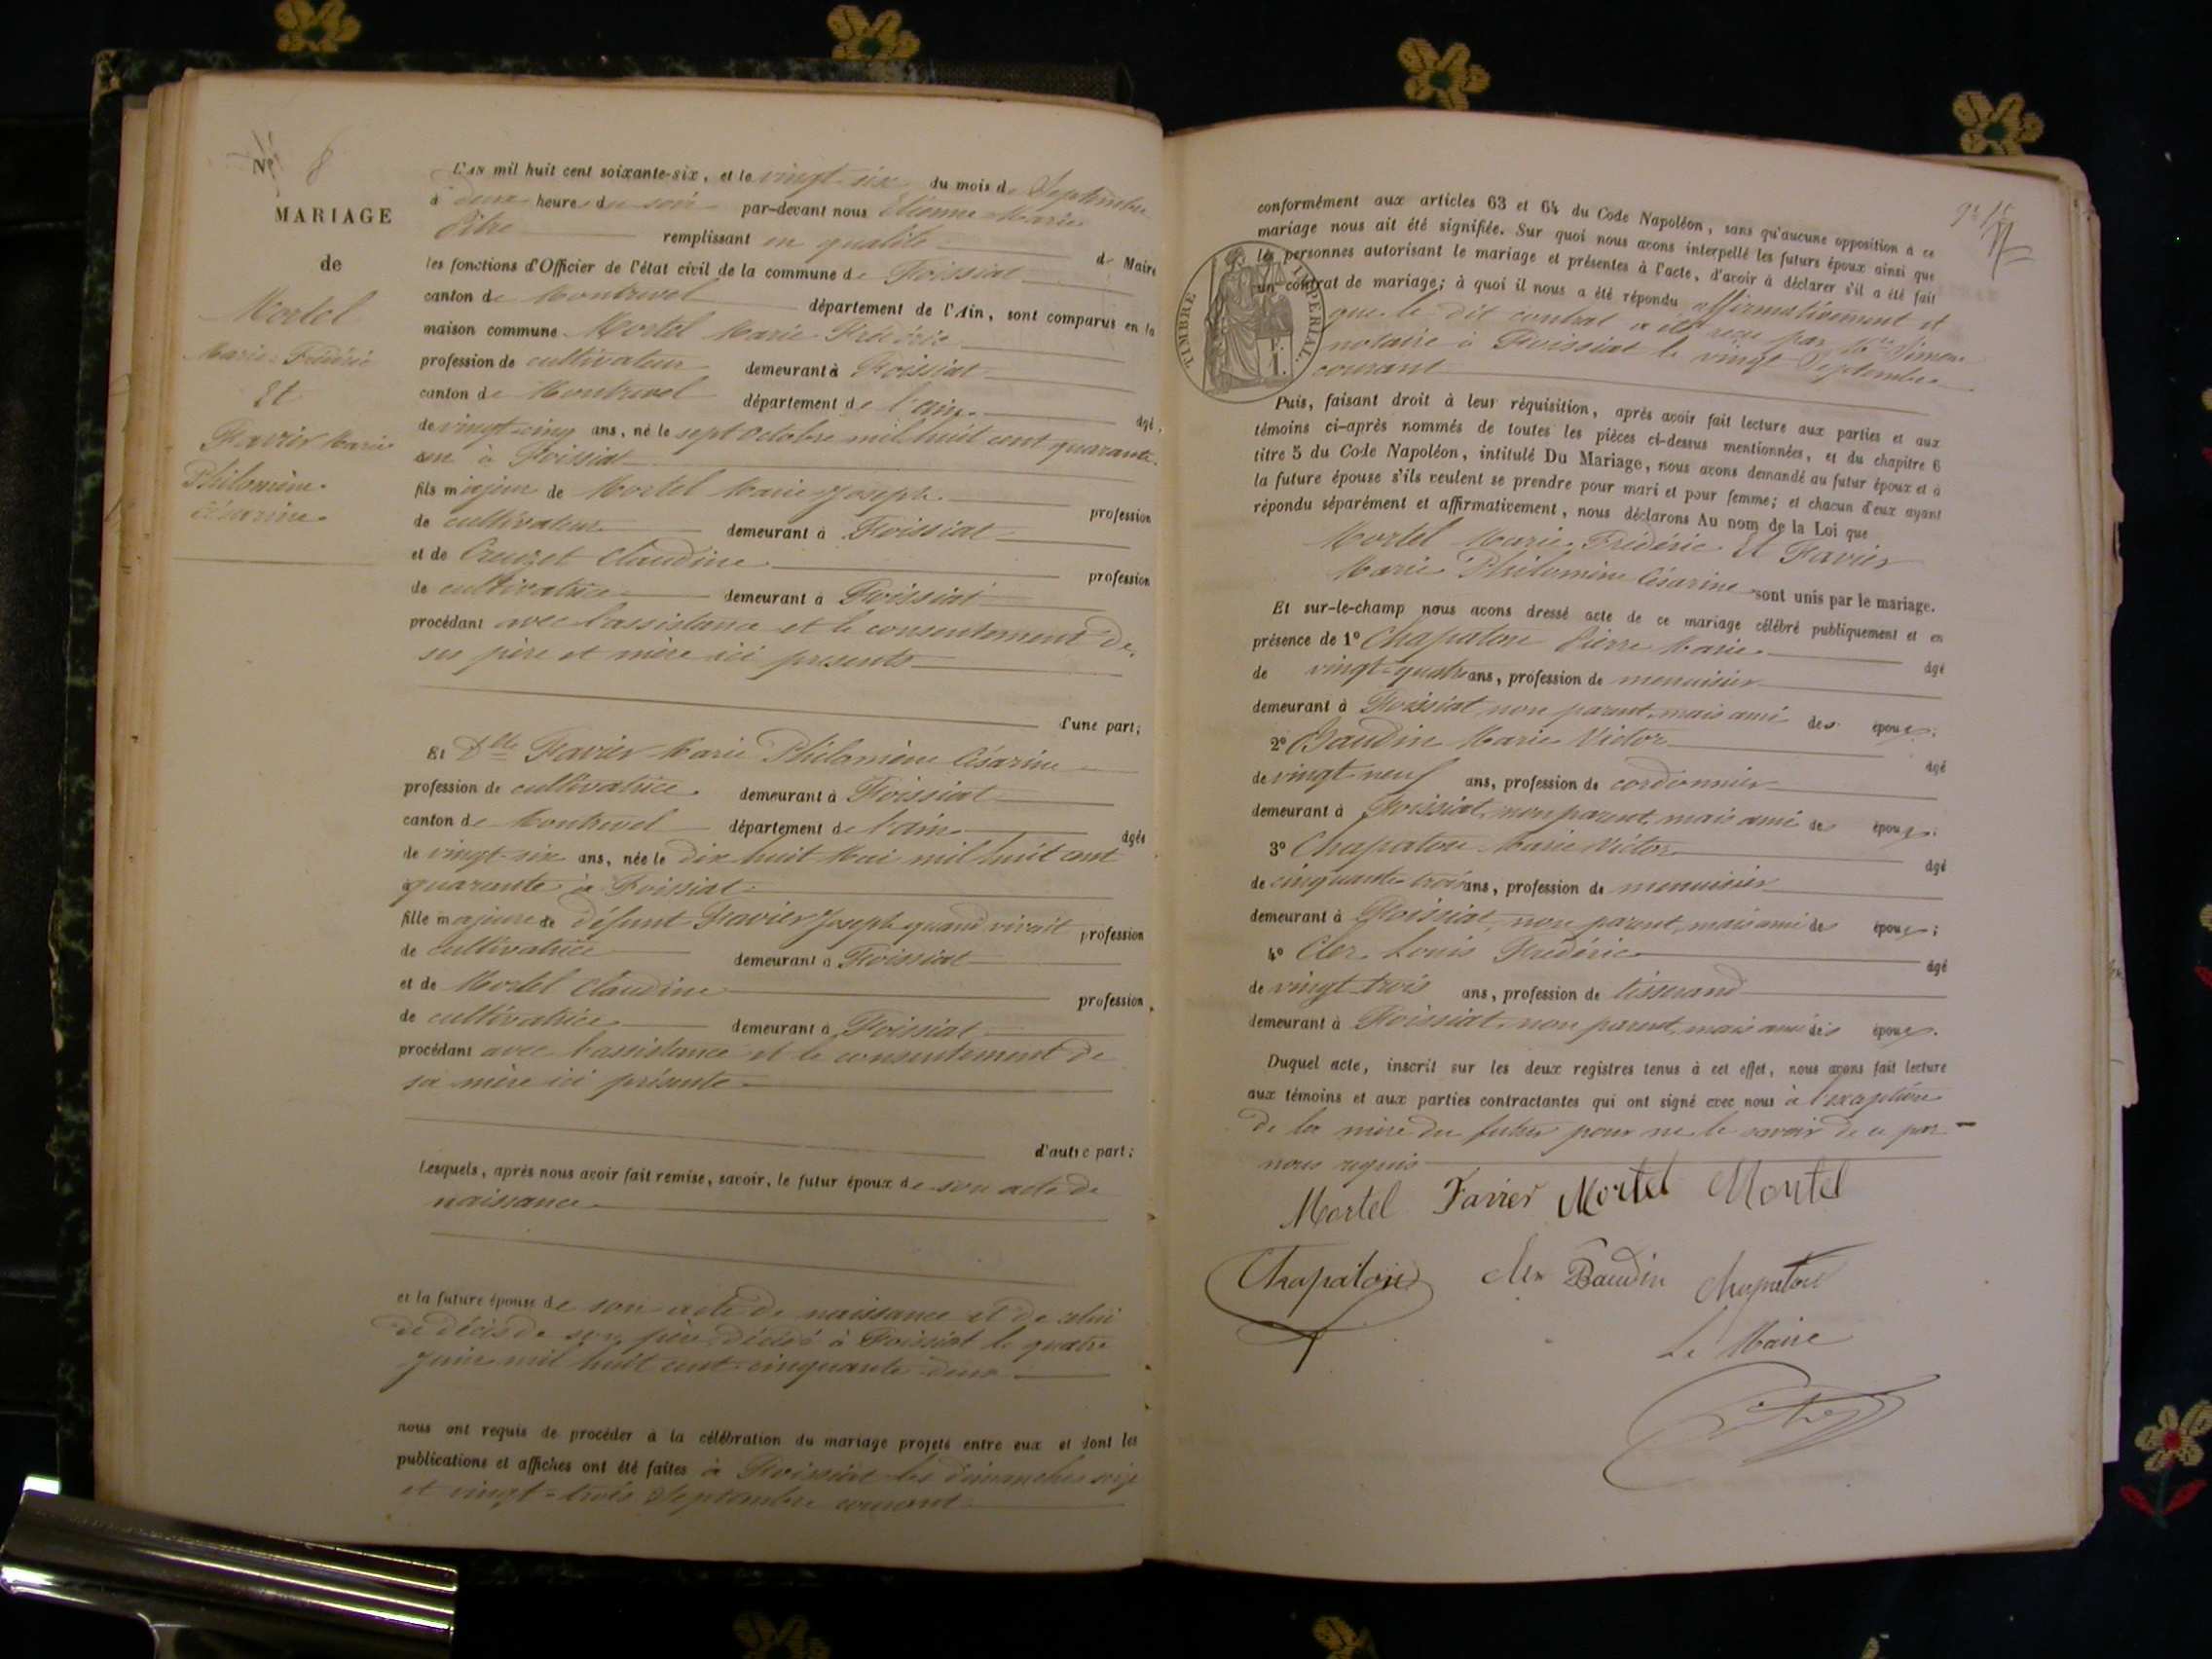 N° 8
MARIAGE
de
Mortel
Marie Frédéric
Et
Favier Marie
Philomène
Césarine
L'AN mil huit cent soixante-six, et le vingt six du mois de Septembre
à deux heures du soir par-devant nous Etienne Marie
remplissant en qualité de Maire
les fonctions d'Officier de l'état civil de la commune de Foissiat
canton de Montrevel département de l'Ain, sont comparus en la
maison commune Mortel Marie Frédéric
profession de cultivateur demeurant à Foissiat
canton de Montrevel département de l'ain âgé
de vingt-cinq ans, né le sept Octobre mil huit cent quarante
un à Foissiat
fils majeur de Mortel Marie Joseph profession
de cultivateur demeurant à Foissiat
et de Creuzet Claudine profession
de cultivatrice demeurant à Foissiat
procédant avec l'assistance et le consentement de
ses père et mère ici présents
d'une part;
Et Dlle Favier Marie Philomène Césarine
profession de cultivatrice demeurant à Foissiat
canton de Montrevel département de l'ain âgée
de vingt-six ans, née le dix huit Mai mil huit cent
quarante à Foissiat
fille majeure de défunt Favier Joseph quand vivait profession
de cultivatrice demeurant à Foissiat
et de Mortel Claudine profession
de cultivatrice demeurant à Foissiat
procédant avec l'assistance et le consentement de
sa mère ici présente
d'autre part;
Lesquels, après nous avoir fait remise, savoir, le futur époux de son acte de
naissance
et la future épouse de son acte de naissance et de celui
de décès de son père décédé à Foissiat le quatre
mil huit cent cinquante deux
nous ont requis de procéder à la célébration du mariage projeté entre eux et dont les
publications et affiches ont été faites à Foissiat les dimanches seize
et vingt-trois Septembre courant
conformément aux articles 63 et 64 du Code Napoléon, sans qu'aucune opposition à ce
mariage nous ait été signifiée. Sur quoi nous avons interpellé les futurs époux ainsi que
les personnes autorisant le mariage et présentes à l'acte, d'avoir à déclarer s'il a été fait
un contrat de mariage; à quoi il nous a été répondu affirmativement et
que le dit contrat a été reçu par Me Simon
notaire à Foissiat le vingt Septembre
courant
TIMBRE IMPERIAL
Puis, faisant droit à leur réquisition, après avoir fait lecture aux parties et aux
témoins ci-après nommés de toutes les pièces ci-dessus mentionnées, et du chapitre 6
titre 5 du Code Napoléon, intitulé Du Mariage, nous avons demandé au futur époux et à
la future épouse s'ils veulent se prendre pour mari et pour femme; et chacun d'eux ayant
répondu séparément et affirmativement, nous déclarons Au nom de la Loi que
Mortel Marie Frédéric Et Favier
Marie Philomène Césarine sont unis par le mariage.
Et sur-le-champ nous avons dressé acte de ce mariage célébré publiquement et en
présence de 1° Chapaton Pierre Marie âgé
de vingt-quatre ans, profession de menuisier
demeurant à Foissiat non parent, mais ami des époux;
2° Baudin Marie Victor âgé
de vingt-neuf ans, profession de cordonnier
demeurant à Foissiat, non parent, mais ami des époux;
3° Chapaton Marie Victor âgé
de cinquante-trois ans, profession de menuisier
demeurant à Foissiat, non parent, mais ami des époux;
4° Cler Louis Frédéric âgé
de vingt-trois ans, profession de tisserand
demeurant à Foissiat, non parent, mais ami des époux.
Duquel acte, inscrit sur les deux registres tenus à cet effet, nous avons fait lecture
aux témoins et aux parties contractantes qui ont signé avec nous à l'exception
de la mère du futur pour ne le savoir de ce par
nous requis
Mortel Favier Mortel Mortel
Chapaton Cler Baudin Chapaton
Le Maire